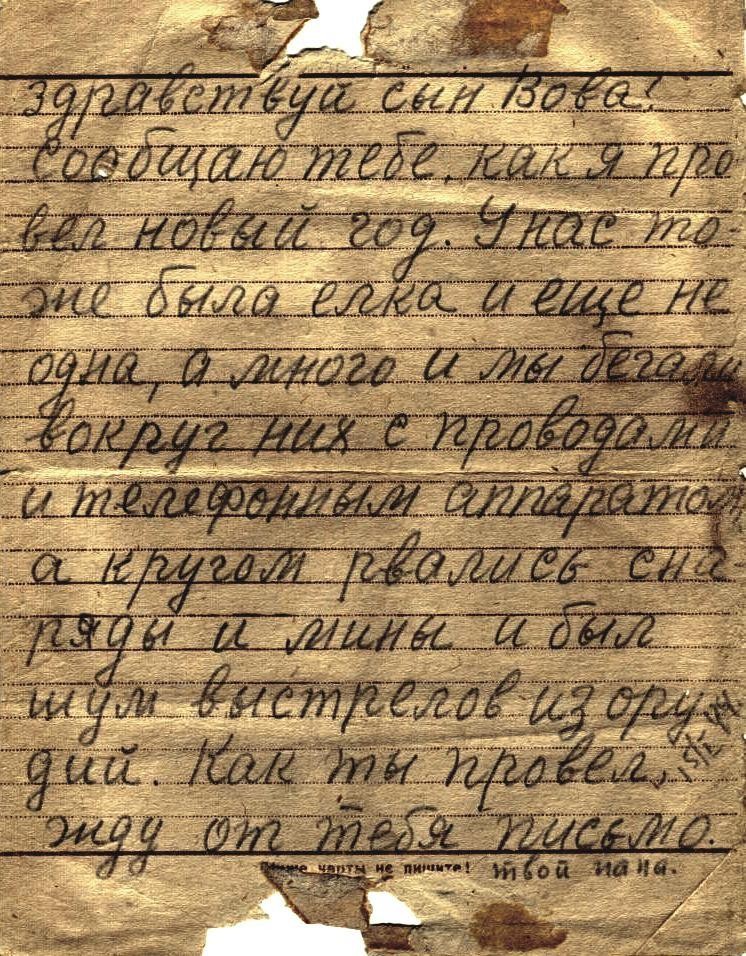 здравствуй сын Вова!
Сообщаю тебе, как я про
вел новый год. У нас то-
же была елка и еще не
одна, а много и мы бегали
вокруг них с проводами
и телефонным аппаратом,
а кругом рвались сна-
ряды и мины и был
шум выстрелов из ору-
дий. Как ты провел,
жду от тебя письмо.
Ниже черты не пишите! твой папа.